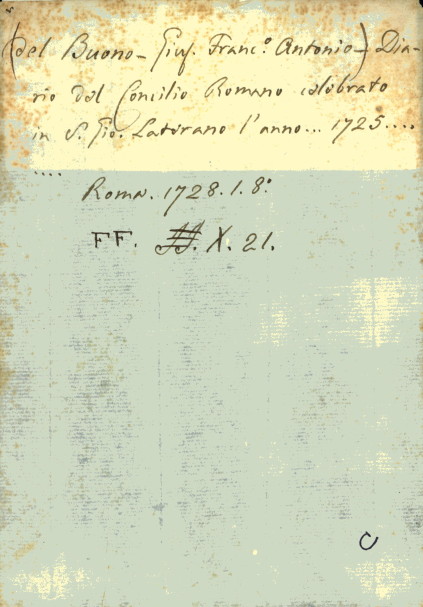 (del Buono - Giuf. Franc.º Antonio -) Dia-
rio del Concilio Romano celebrato
in S. Gio. Laterano l'anno... 1725....
....
Roma. 1728. 1. 8º
FF. X. 21.
C